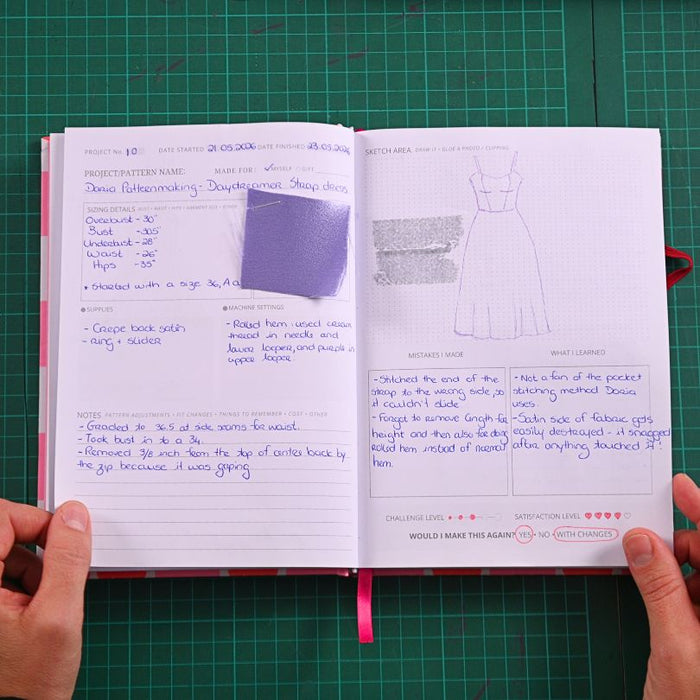 PROJECT No. 10 DATE STARTED 21.05.2026 DATE FINISHED 23.05.2026
PROJECT/PATTERN NAME: MADE FOR: ✓MYSELF GIFT
Daria Patternmaking - Daydreamer Strap dress
SIZING DETAILS BUST • WAIST • HIPS • GARMENT SIZE • OTHER
Overbust - 30"
Bust - 30.5"
Underbust - 28"
Waist - 26"
Hips - 35"
* Started with a size 36, A
SUPPLIES
- Crepe back satin
- ring + slider
MACHINE SETTINGS
- Rolled hem: used cream
thread in needle and
lower looper, and purple in
upper looper.
NOTES PATTERN ADJUSTMENTS • FIT CHANGES • THINGS TO REMEMBER • COST • OTHER
- Graded to 36.5 at side seams for waist.
- Took bust in to a 34.
- Removed 3/8 inch from the top of center back by
the zip because it was gaping
SKETCH AREA DRAW IT • GLUE A PHOTO • CLIPPING
MISTAKES I MADE
- Stitched the end of the
strap to the wrong side, so
it couldn't slide
- Forgot to remove length for
height and then also for doing
Rolled hem instead of normal
hem.
WHAT I LEARNED
- Not a fan of the pocket
stitching method Daria
uses.
- Satin side of fabric gets
easily destroyed - it snagged
after anything touched it!
CHALLENGE LEVEL SATISFACTION LEVEL
WOULD I MAKE THIS AGAIN? YES • NO • WITH CHANGES